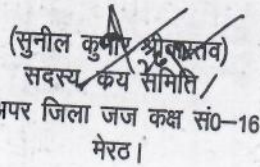 (सुनील कुमार श्रीवास्तव)
सदस्य, क्रय समिति/
अपर जिला जज कक्ष सं0–16
मेरठ।